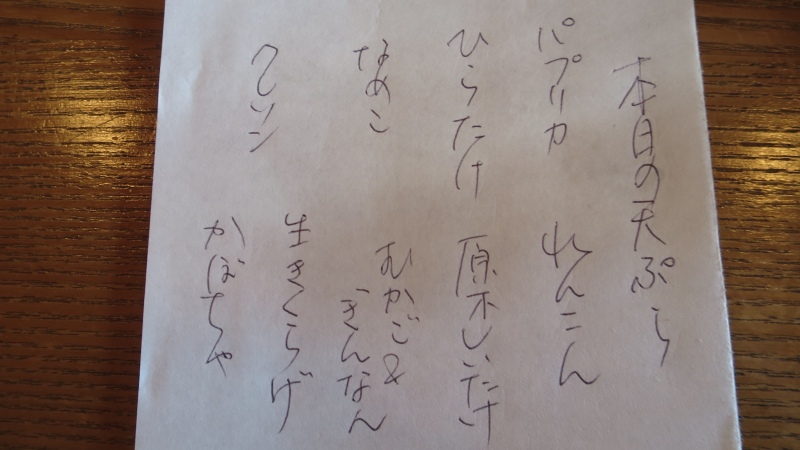 本日の天ぷら
パプリカ れんこん
ひらたけ 原木しいたけ
なめこ むかご&
ぎんなん
クレソン 生きくらげ
かぼちゃ